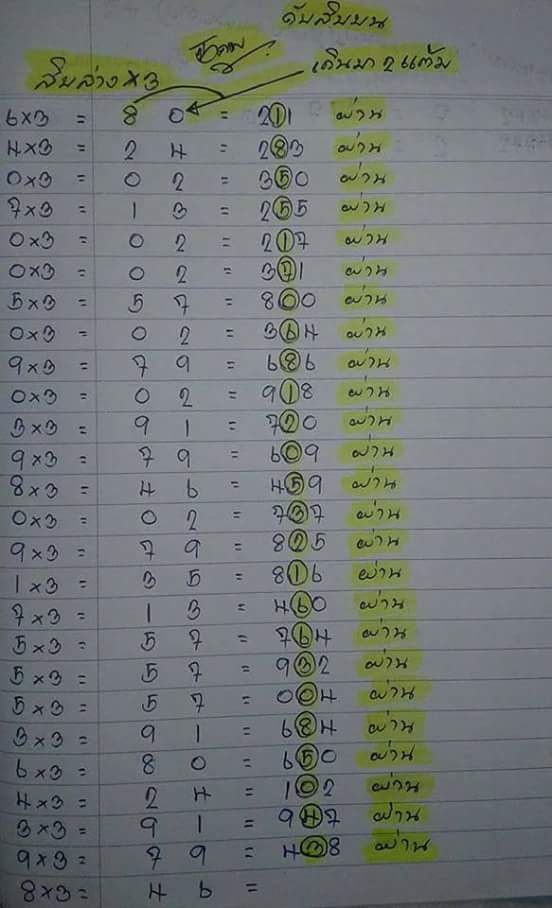 ดับสิบบน
สิบล่าง×3 เดินมา 2 แต้ม
6×3 = 8 0 = 211 ผ่าน
4×3 = 2 4 = 283 ผ่าน
0×3 = 0 2 = 350 ผ่าน
7×3 = 1 3 = 255 ผ่าน
0×3 = 0 2 = 217 ผ่าน
0×3 = 0 2 = 371 ผ่าน
5×3 = 5 7 = 800 ผ่าน
0×3 = 0 2 = 364 ผ่าน
9×3 = 7 9 = 686 ผ่าน
0×3 = 0 2 = 918 ผ่าน
3×3 = 9 1 = 720 ผ่าน
9×3 = 7 9 = 609 ผ่าน
8×3 = 4 6 = 459 ผ่าน
0×3 = 0 2 = 737 ผ่าน
9×3 = 7 9 = 825 ผ่าน
1×3 = 3 5 = 816 ผ่าน
7×3 = 1 3 = 460 ผ่าน
5×3 = 5 7 = 764 ผ่าน
5×3 = 5 7 = 932 ผ่าน
5×3 = 5 7 = 004 ผ่าน
3×3 = 9 1 = 684 ผ่าน
6×3 = 8 0 = 650 ผ่าน
4×3 = 2 4 = 102 ผ่าน
3×3 = 9 1 = 947 ผ่าน
9×3 = 7 9 = 438 ผ่าน
8×3 = 4 6 =